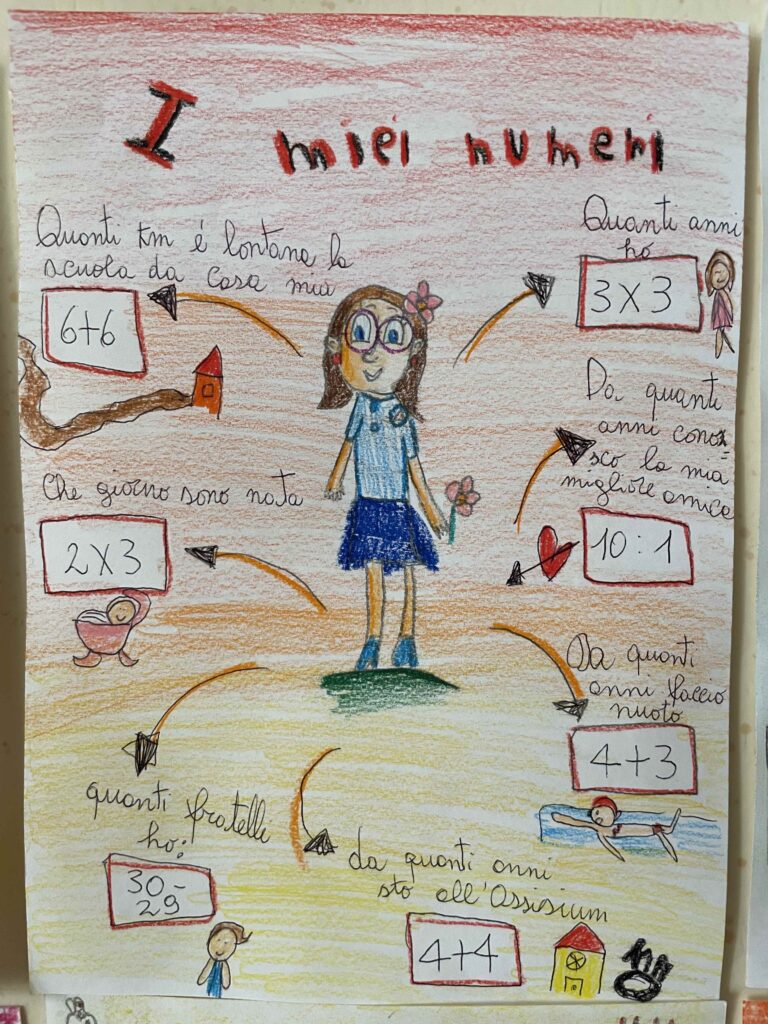 I miei numeri
Quanti km é lontana la
scuola da casa mia
6+6
Quanti anni
ho
3X3
Da quanti
anni cono
sco la mia
migliore amica
10:1
Che giorno sono nata
2X3
Da quanti
anni faccio
nuoto
4+3
quanti fratelli
ho:
30-
29
da quanti anni
sto all'Assisium
4+4